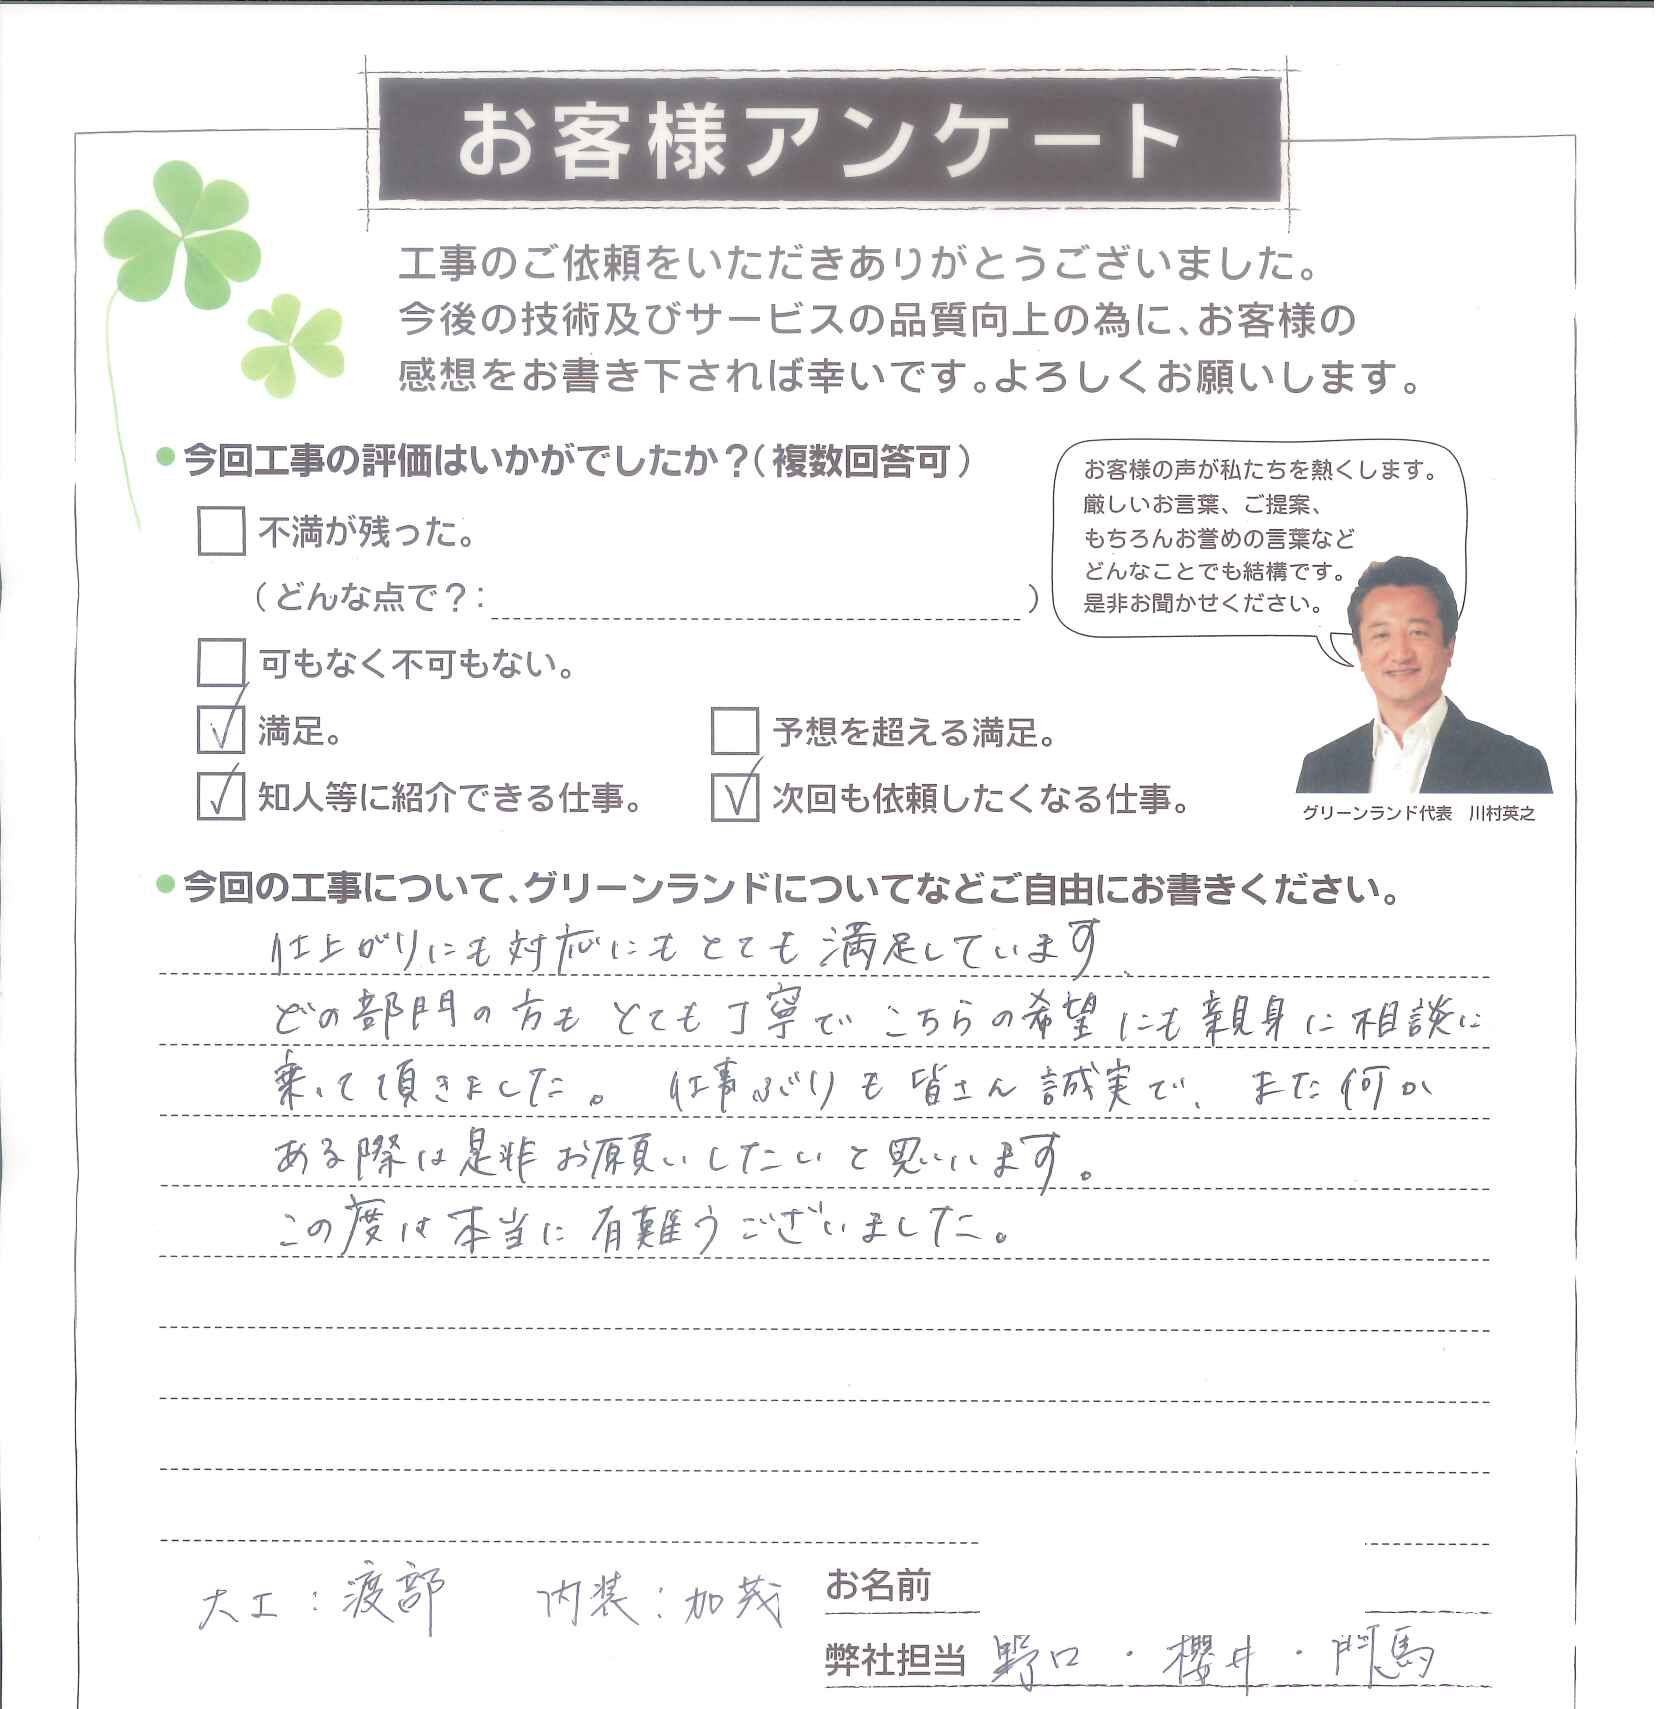 お客様アンケート
工事のご依頼をいただきありがとうございました。
今後の技術及びサービスの品質向上の為に、お客様の
感想をお書き下されば幸いです。よろしくお願いします。
●今回工事の評価はいかがでしたか？（複数回答可）
不満が残った。
（どんな点で？: ）
可もなく不可もない。
満足。
予想を超える満足。
知人等に紹介できる仕事。
次回も依頼したくなる仕事。
お客様の声が私たちを熱くします。
厳しいお言葉、ご提案、
もちろんお誉めの言葉など
どんなことでも結構です。
是非お聞かせください。
グリーンランド代表　川村英之
●今回の工事について、グリーンランドについてなどご自由にお書きください。
仕上がりにも対応にもとても満足しています、
どの部門の方もとても丁寧でこちらの希望にも親身に相談に
乗って頂きました。仕事ぶりも皆さん誠実で、また何か
ある際は是非お願いしたいと思います。
この度は本当に有難うございました。
大工：渡部　内装：加茂
お名前
弊社担当 野口・櫻井・門馬